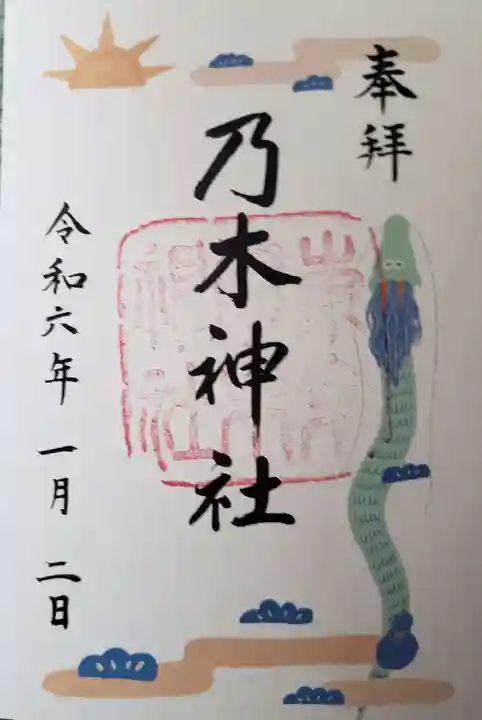 奉拝
乃木神社
令和六年 一月 二日